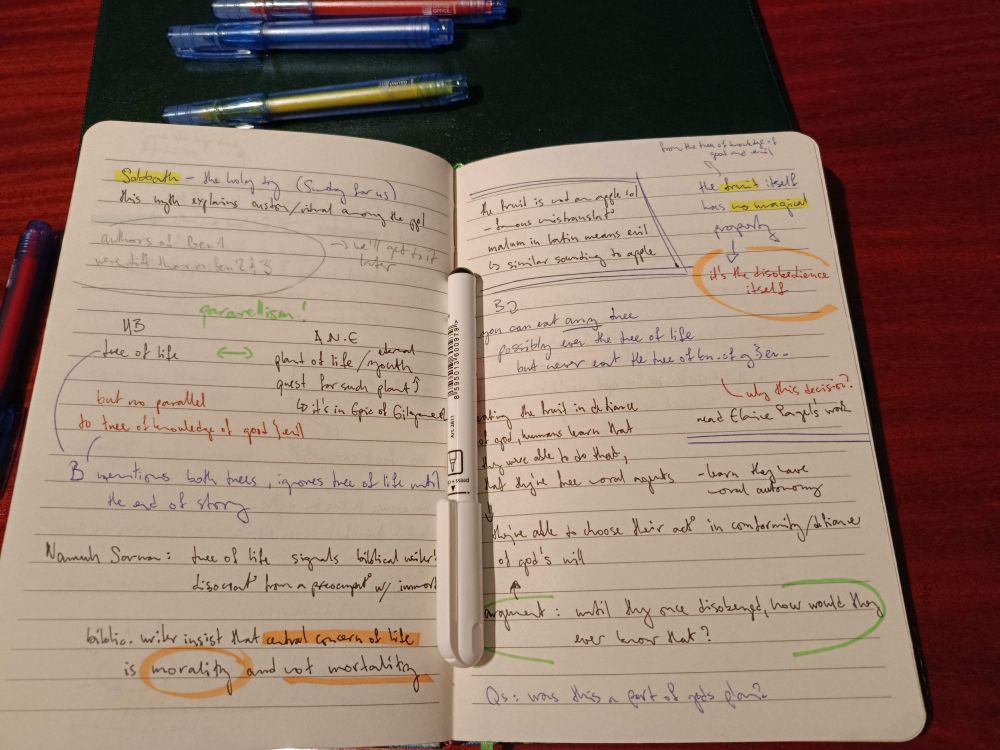 Sabbath - the holy day (Sunday for us)
this myth explains custom/ritual among the ppl
authors of Gen 1
were diff than in Gen 2 & 3
→ we'll get to it
later
pararellism!
HB
tree of life
A.N.E
plant of life / eternal youth
quest for such plant
↳ it's in Epic of Gilgame
but no parallel
to tree of knowledge of good & evil
B mentions both trees, ignores tree of life until
the end of story
Sarna: tree of life signals biblical writer'
dissociat° from a preocupat° w/ immor
biblic. writer insist that central concern of life
is morality and not mortality
from the tree of knowledge of
good and evil
the fruit is not an apple lol
- famous mistranslat°
malum in latin means evil
↳ similar sounding to apple
the fruit itself
has no magical
property
it's the disobedience
itself
you can eat any tree
possibly even the tree of life
but never eat the tree of kn. of g & ev.
why this decision?
read Elaine Pagel's work
eating the fruit in defiance
of god, humans learn that
they were able to do that,
that they're free moral agents
- learn they have
moral autonomy
they're able to choose their act° in comformity/defiance
of god's will
argument: until they once disobeyed, how would they
ever know that?
Qs: was this a part of gods plan?
8595013600979
Art. 2811